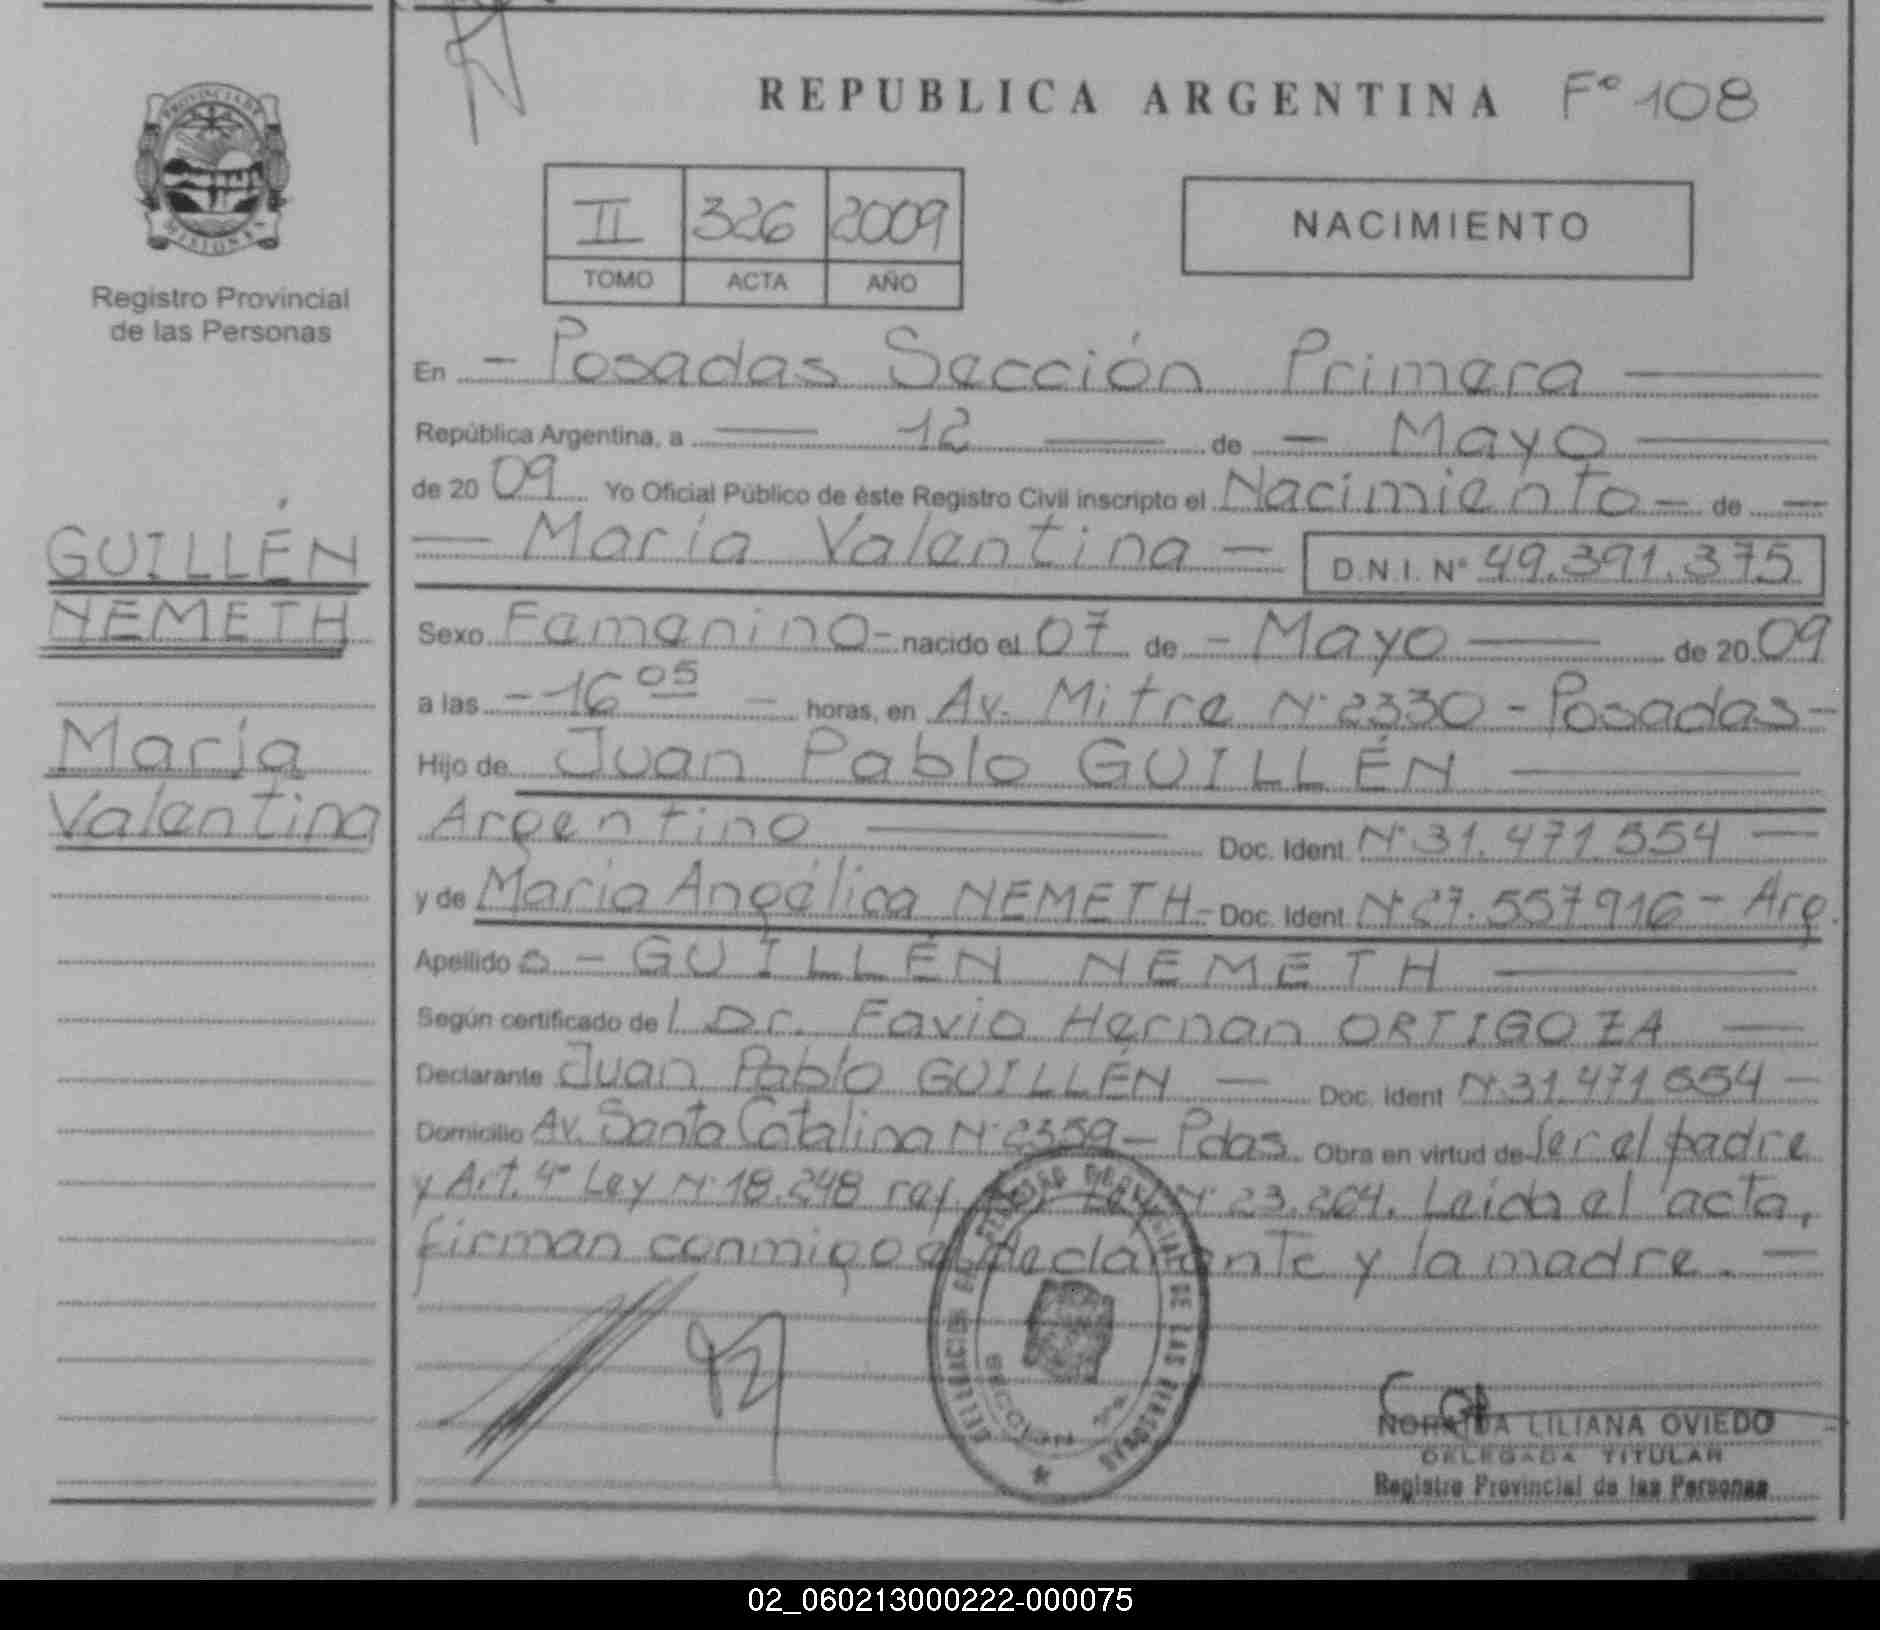 REPUBLICA ARGENTINA Fº 108
PROVINCIA DE
MISIONES
Registro Provincial
de las Personas
II 326 2009
TOMO ACTA AÑO
NACIMIENTO
En - Posadas Sección Primera
República Argentina, a 12 de - Mayo
de 20 09 Yo Oficial Público de éste Registro Civil inscripto el Nacimiento - de
María Valentina - D.N.I. Nº 49.391.375
GUILLÉN
NEMETH
María
Valentina
Sexo Femenino - nacido el 07 de - Mayo de 20 09
a las - 16 05 - horas, en Av. Mitre Nº 2330 - Posadas -
Hijo de Juan Pablo GUILLÉN
Argentino Doc. Ident. Nº 31.471.554
y de María Angélica NEMETH - Doc. Ident. Nº 27.557916 - Arg.
Apellido - GUILLÉN NEMETH
Según certificado de l Dr. Favio Hernan ORTIGOZA
Declarante Juan Pablo GUILLÉN - Doc. Ident Nº 31.471554 -
Domicilio Av. Santa Catalina Nº 2359 - Pdas. Obra en virtud de Ser el padre
y Art. 4º Ley Nº 18.248 ref. Nº 23.264. Leida el acta,
firman conmigo el declarante y la madre. -
DELEGACION DEL REGISTRO PROVINCIAL DE LAS PERSONAS
SECCION 1ª
NORAIDA LILIANA OVIEDO
DELEGADA TITULAR
Registro Provincial de las Personas
02_060213000222-000075